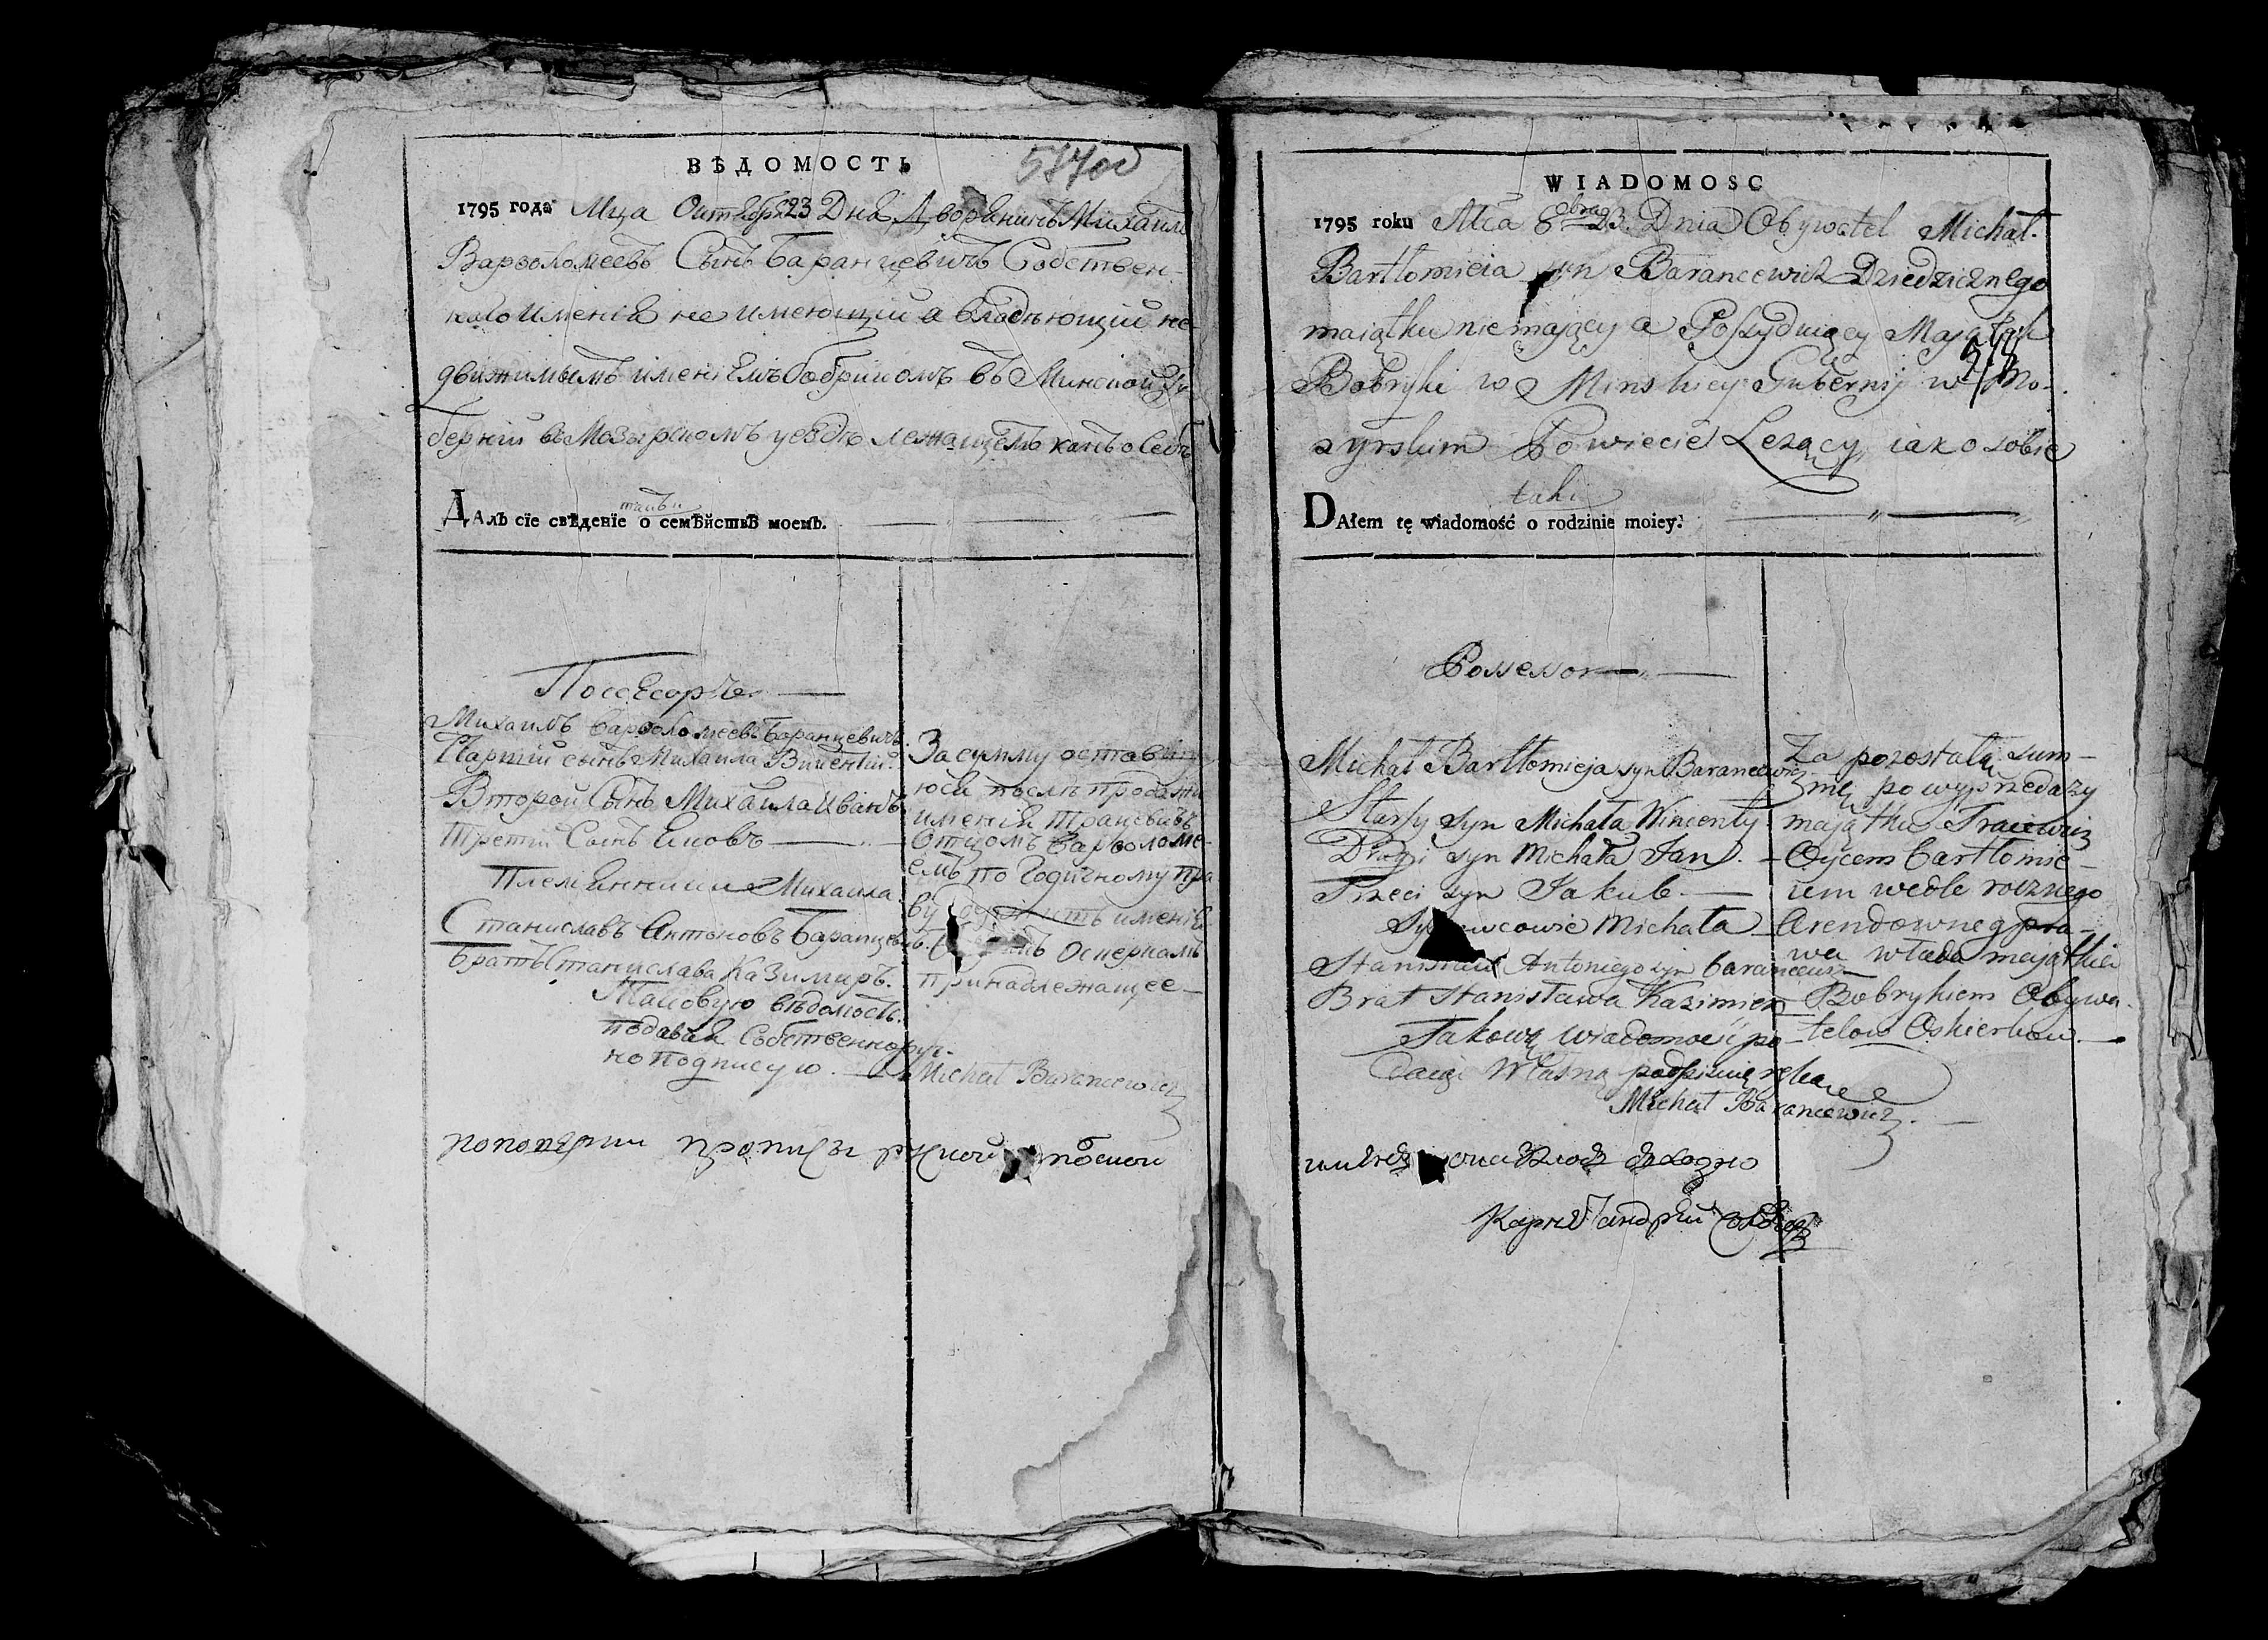 ВѢДОМОСТЬ
1795 года Мца Октября 23 Дня Дворянинъ Михаилъ
Варфоломеевъ Сынъ Баранцевичъ Собствен-
наго имения не имеющий а владеющий не-
движимымъ имениемъ Бобрикомъ въ Минской Гу
берний въ Мозырскомъ уезде лежащемъ какъ о себѣ
такъ и
Далъ сїе свѣденїе о семѣйствѣ моемъ.
Поссесоръ
Михаилъ Варфоломеевъ Баранцевичъ.
Партій сынъ Михаила Викентій.
Второй Сынъ Михаила Иванъ.
Третій Сынъ Яковъ
Племянники Михаила.
Станиславъ Антоновъ Баранцевичъ.
Братъ Станислава Казимиръ.
Таковую вѣдомость.
подавая Собственнору-
но подписую.
За сумму оставшу
юся послѣ продажи
имения Трацевичъ
Отцомъ Варфоломе-
емъ по Годичному пра
ву имение
Оскеркамъ
принадлежащее
Michał Barancewicz
WIADOMOSC
1795 roku Mca 8bra 23. Dnia Obywatel Michał.
Bartłomieia syn Barancewicz Dziedzicznego
maiątku nie mający a Possyduiący Mająteh
Bobryki w Minskiey Gubernij w Mo-
zyrskim Powiecie Lezący, iako o sobie
taki
DAłem tę wiadomość o rodzinie moiey.
Possessor
Michał Bartłomieja syn Barancewicz
Starszy syn Michała Wincenty.
Drugi syn Michała Jan.
Trzeci syn Jakub.
Sy wcowie Michała
Stanisław Antoniego syn Barancewicz
Brat Stanisława Kazimierz
Takową wiadomość po
daiąc Własną podpisuię ręką
Michał Barancewicz.
Za pozostałą sum-
mę po wyprzedazy
majątku Tracewicz
Oycem Bartłomie-
iem wedle rocznego
Arendownego pra-
wa włada majątkiem
Bobrykiem Obywa-
telow Oskierkow.